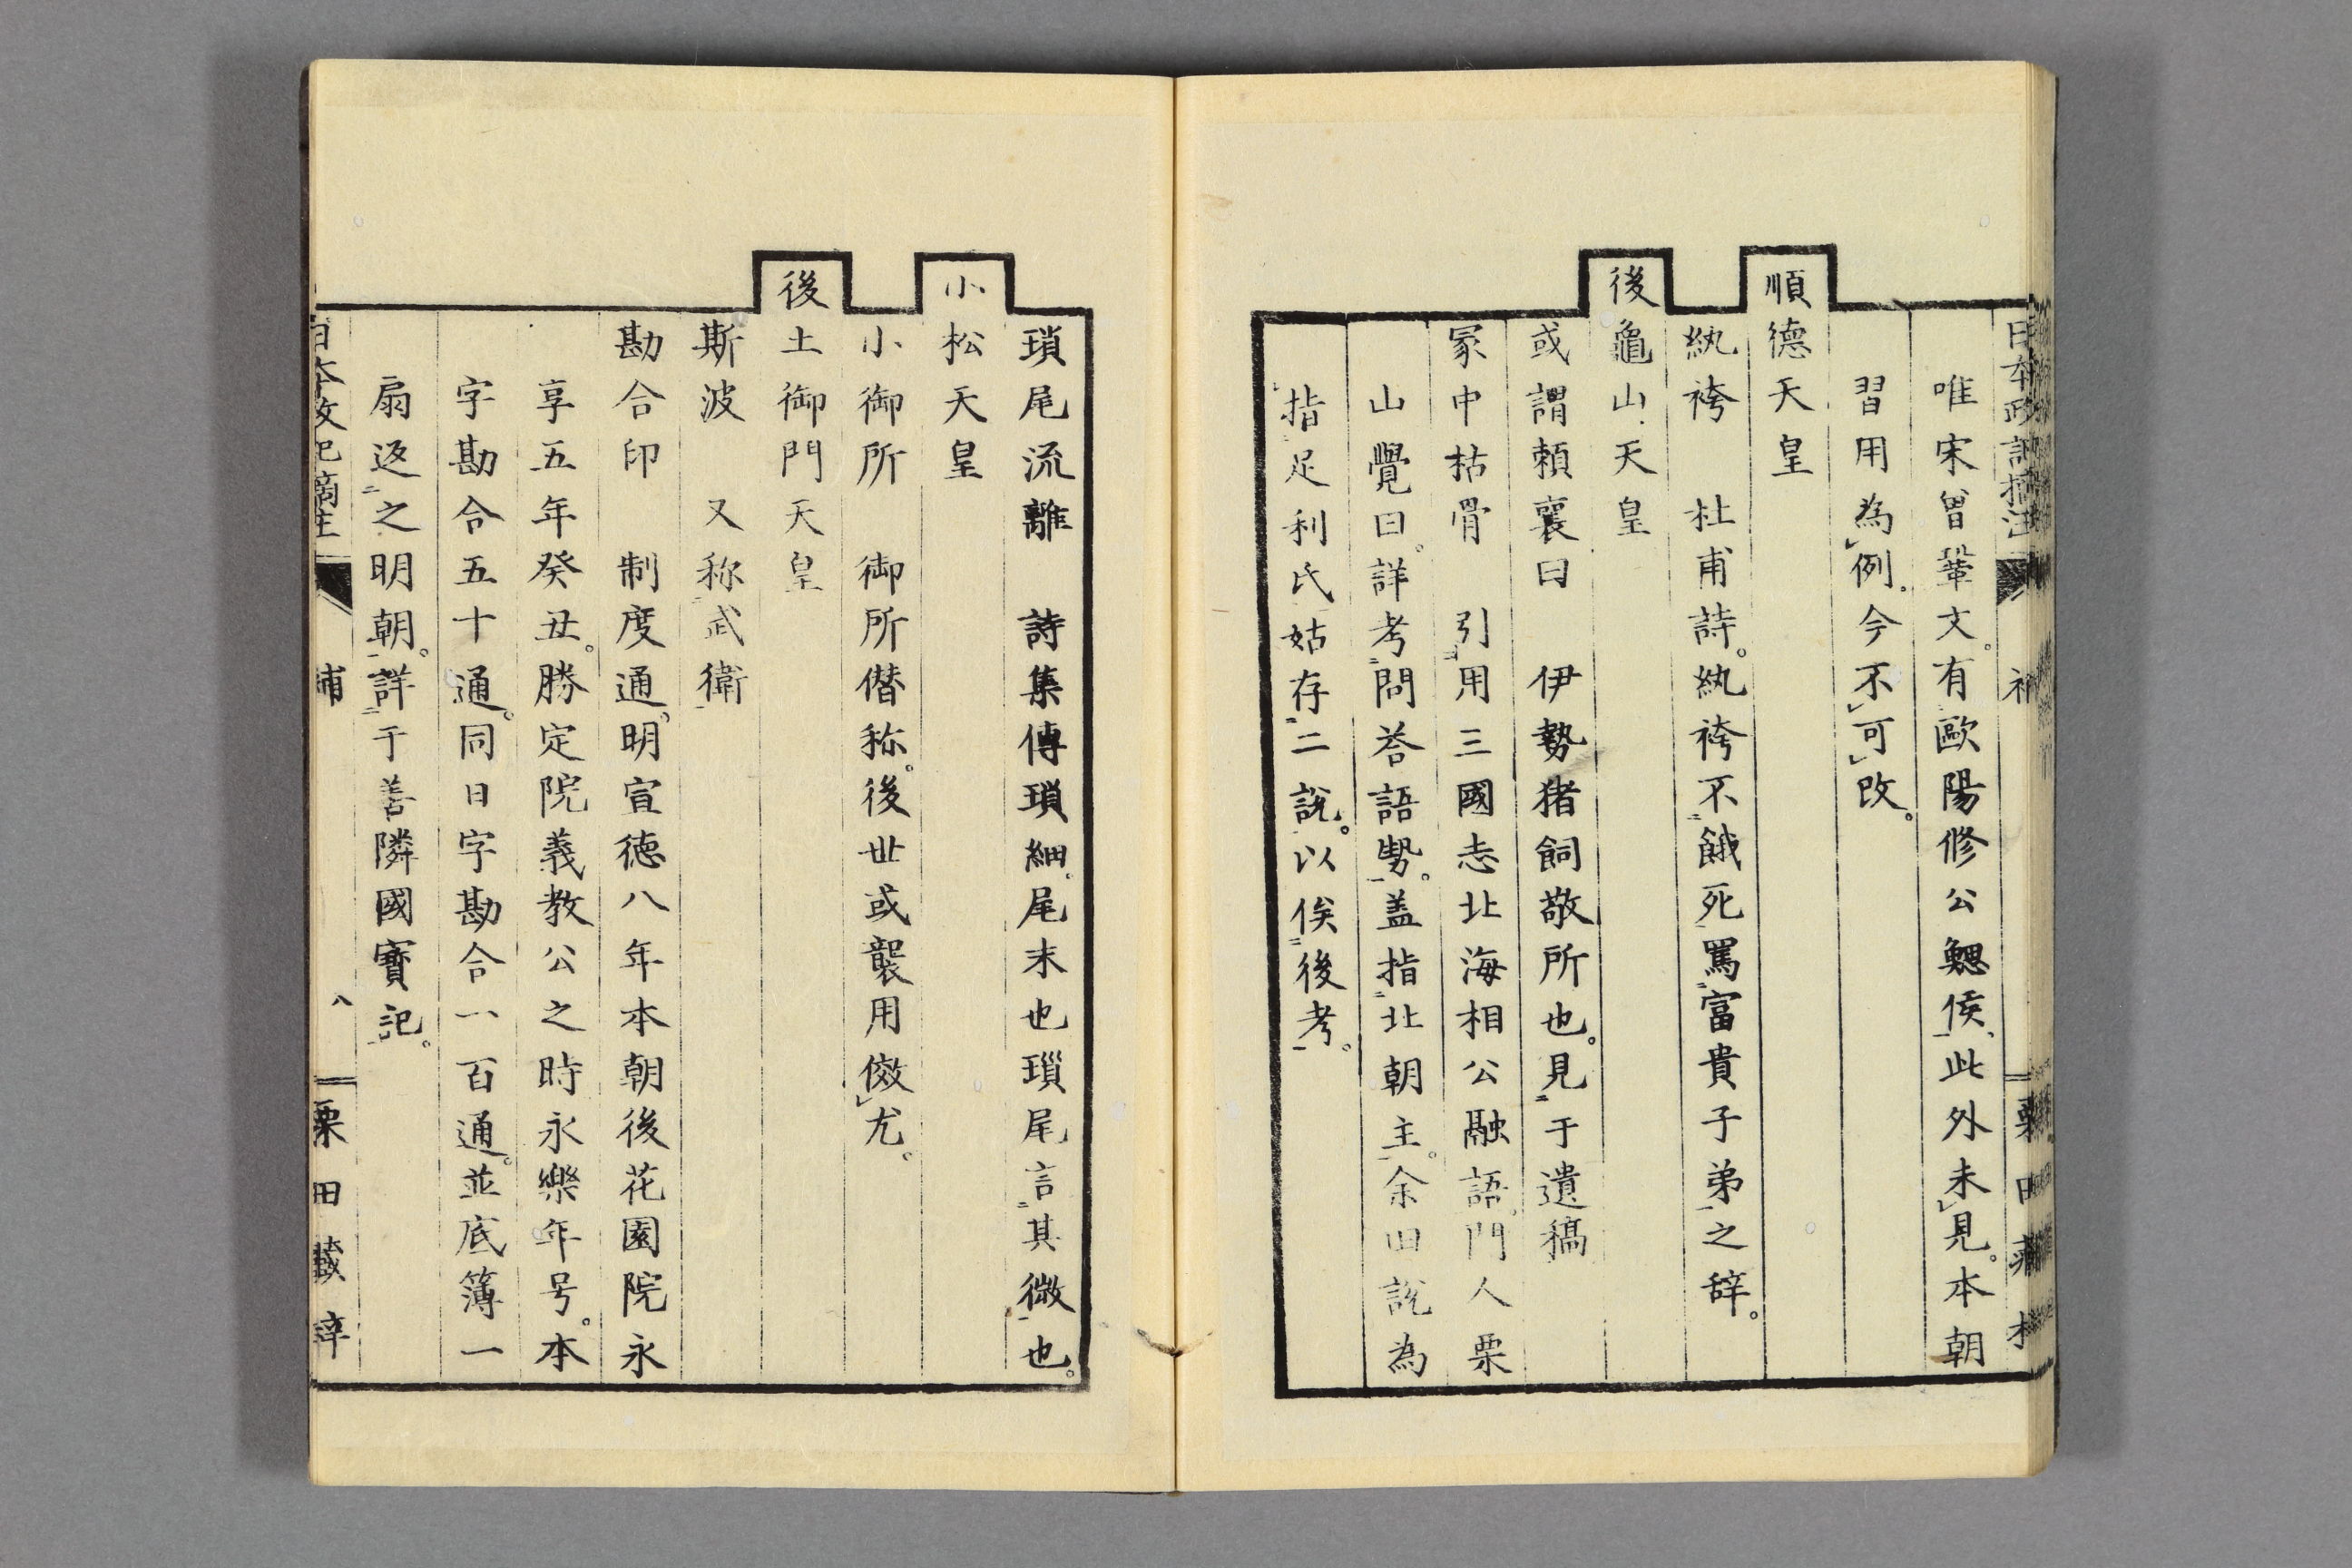 日本政記摘注
補
栗田蔵梓
唯宋曾鞏文。有歐陽修公鰓侯、此外未見。本朝
習用為例。今不可改。
順德天皇
紈袴　杜甫詩。紈袴不餓死罵富貴子弟之辞。
後龜山天皇
或謂頼襄曰　伊勢猪飼敬所也。見于遺稿
冢中枯骨　引用三國志北海相公融語。門人栗
山覺曰。詳考問答語勢。盖指北朝主。余旧說為
指足利氏姑存二說。以俟後考。
瑣尾流離　詩集傳瑣細。尾末也瑣尾言其微也。
小松天皇
小御所　御所僭称。後世或襲用傚尤。
後土御門天皇
斯波　又称武衛
勘合印　制度通。明宣徳八年本朝後花園院永
享五年癸丑。勝定院義教公之時永樂年号。本
字勘合五十通。同日字勘合一百通。並底簿一
扇返之明朝。詳于善隣國寶記。
日本政記摘注
補
八
栗田蔵梓